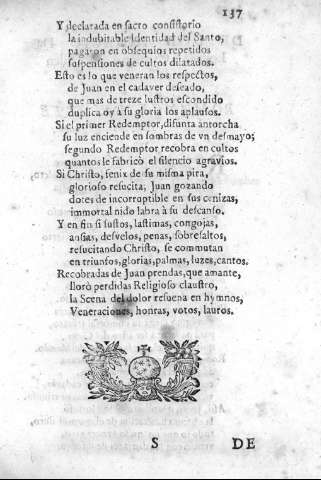 137
Y declarada en sacro consistorio
la indubitable Identidad del Santo,
pagaron en obsequios repetidos
suspensiones de cultos dilatados.
Esto es lo que veneran los respectos,
de Juan en el cadaver deseado,
que mas de treze lustros escondido
duplica oy à su gloria los aplausos.
Si el primer Redemptor, difunta antorcha
su luz enciende en sombras de vn desmayo;
segundo Redemptor recobra en cultos
quantos le fabricò el silencio agravios.
Si Christo, fenix de su misma pira,
glorioso resucita; Juan gozando
dotes de incorruptible en sus cenizas,
immortal nido labra à su descanso.
Y en fin si sustos, lastimas, congojas,
ansias, desvelos, penas, sobresaltos,
resucitando Christo, se commutan
en triunfos, glorias, palmas, luzes, cantos.
Recobradas de Juan prendas, que amante,
llorò perdidas Religioso claustro,
la Scena del dolor resuena en hymnos,
Veneraciones, honras, votos, lauros.
S DE